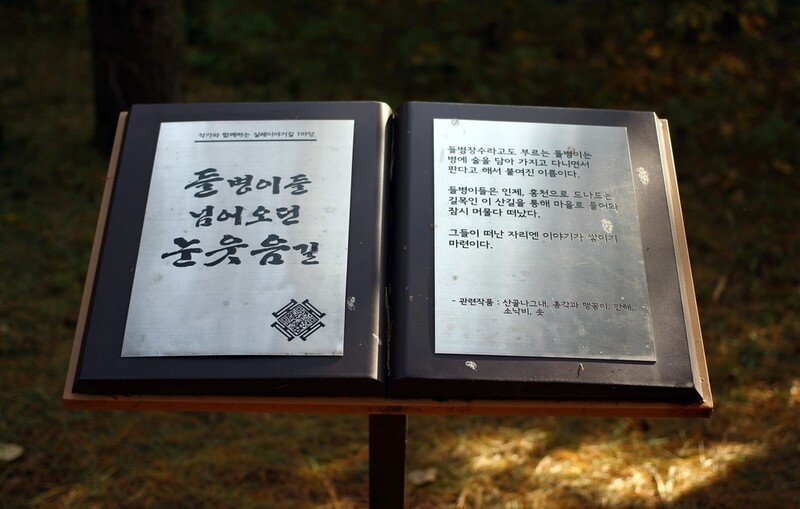 작가와 함께하는 실레이야기길 1마당
들병이들
넘어오던
눈웃음길
들병장수라고도 부르는 들병이는
병에 술을 담아 가지고 다니면서
판다고 해서 붙여진 이름이다.
들병이들은 인제, 홍천으로 드나드는
길목인 이 산길을 통해 마을로 들어와
잠시 머물다 떠났다.
그들이 떠난 자리엔 이야기가 쌓이기
마련이다.
- 관련작품 : 산골나그내, 총각과 맹꽁이, 안해,
소낙비, 솟